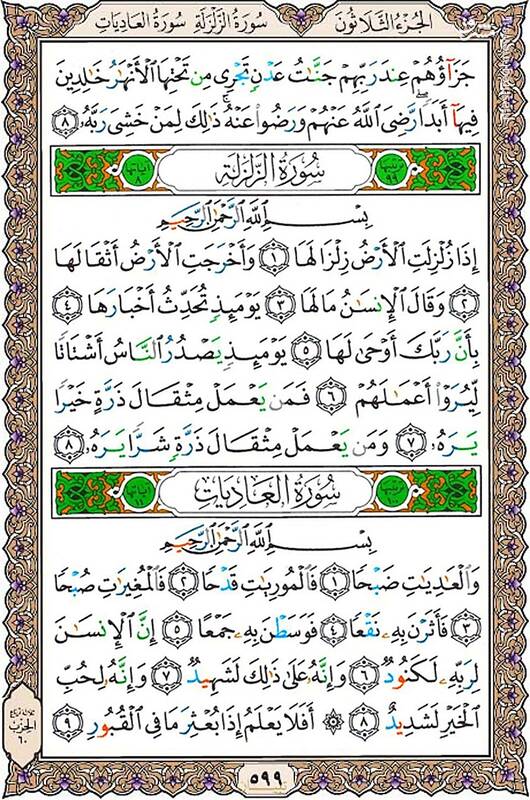 الجزء الثلاثون سورة الزلزلة سورة العاديات
جَزَآؤُهُمْ عِندَ رَبِّهِمْ جَنَّٰتُ عَدْنٍ تَجْرِى مِن تَحْتِهَا ٱلْأَنْهَٰرُ خَٰلِدِينَ
فِيهَآ أَبَدًا ۖ رَّضِىَ ٱللَّهُ عَنْهُمْ وَرَضُوا۟ عَنْهُ ۚ ذَٰلِكَ لِمَنْ خَشِىَ رَبَّهُۥ ٨
ترتيبها ٩٩ سُورَةُ الزَّلْزَلَةِ آياتها ٨
بِسْمِ ٱللَّهِ ٱلرَّحْمَٰنِ ٱلرَّحِيمِ
إِذَا زُلْزِلَتِ ٱلْأَرْضُ زِلْزَالَهَا ١ وَأَخْرَجَتِ ٱلْأَرْضُ أَثْقَالَهَا
٢ وَقَالَ ٱلْإِنسَٰنُ مَا لَهَا ٣ يَوْمَئِذٍ تُحَدِّثُ أَخْبَارَهَا ٤
بِأَنَّ رَبَّكَ أَوْحَىٰ لَهَا ٥ يَوْمَئِذٍ يَصْدُرُ ٱلنَّاسُ أَشْتَاتًا
لِّيُرَوْا۟ أَعْمَٰلَهُمْ ٦ فَمَن يَعْمَلْ مِثْقَالَ ذَرَّةٍ خَيْرًا
يَرَهُۥ ٧ وَمَن يَعْمَلْ مِثْقَالَ ذَرَّةٍ شَرًّا يَرَهُۥ ٨
سُورَةُ الْعَادِيَاتِ
بِسْمِ ٱللَّهِ ٱلرَّحْمَٰنِ ٱلرَّحِيمِ
وَٱلْعَٰدِيَٰتِ ضَبْحًا ١ فَٱلْمُورِيَٰتِ قَدْحًا ٢ فَٱلْمُغِيرَٰتِ صُبْحًا
٣ فَأَثَرْنَ بِهِۦ نَقْعًا ٤ فَوَسَطْنَ بِهِۦ جَمْعًا ٥ إِنَّ ٱلْإِنسَٰنَ
لِرَبِّهِۦ لَكَنُودٌ ٦ وَإِنَّهُۥ عَلَىٰ ذَٰلِكَ لَشَهِيدٌ ٧ وَإِنَّهُۥ لِحُبِّ
ٱلْخَيْرِ لَشَدِيدٌ ٨ ۞ أَفَلَا يَعْلَمُ إِذَا بُعْثِرَ مَا فِى ٱلْقُبُورِ ٩
الحزب
٦٠
٥٩٩